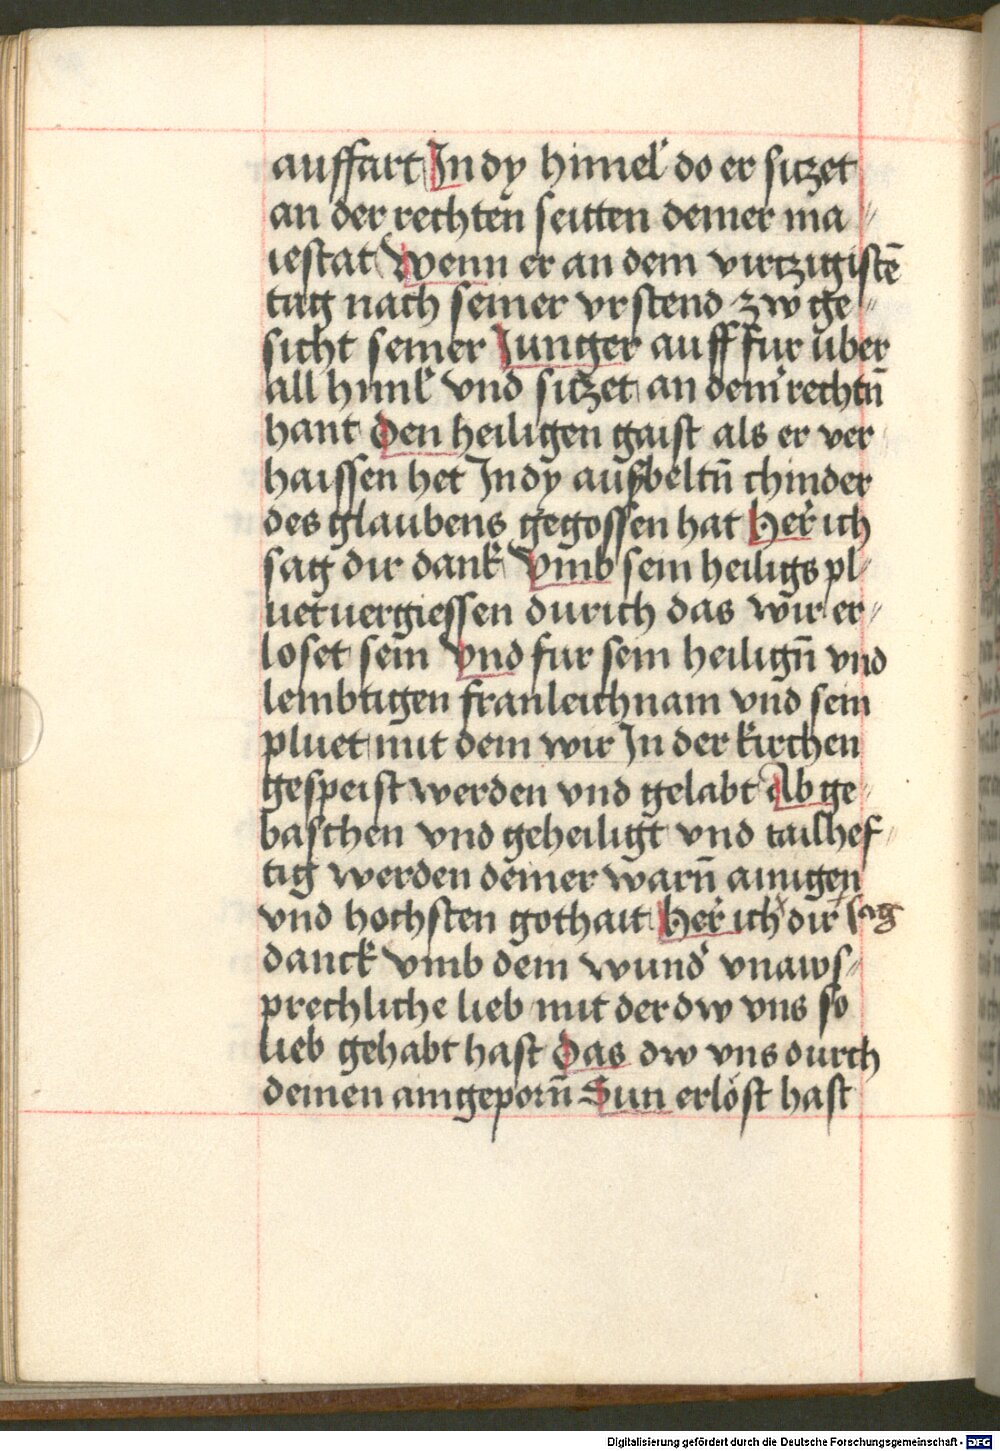 auffart In dy himel do er siczet
an der rechten seitten deiner ma⸗
iestat Wenn er an dem virtzigistē
tag nach seiner vrstend zw ge⸗
sicht seiner Iunger auff fur über
all himl vnd siczet an deinˀ rechtn̄
hant Den heiligen gaist als er ver
haissen het In dy auſsbeltn̄ chinder
des glaubens gegossen hat Her ich
sag dir dank Vmb sein heiligs pl⸗
uetuergiessen durich das wir er⸗
loset sein Vnd fur sein heilign̄ vnd
lembtigen franleichnam vnd sein
pluet mit dem wir In der kirchen
gespeist werden vnd gelabt Ab ge⸗
baschen vnd geheiligt vnd tailhef⸗
tig werden deiner warn̄ ainigen
vnd hochsten gothait Her ich dir sag
danck vmb dein wundˀ vnaws⸗
prechliche lieb mit der dw vns so
lieb gehabt hast Das dw vns durch
deinen aingeporn̄ Sun erlöst hast
Digitalisierung gefördert durch die Deutsche Forschungsgemeinschaft - DFG